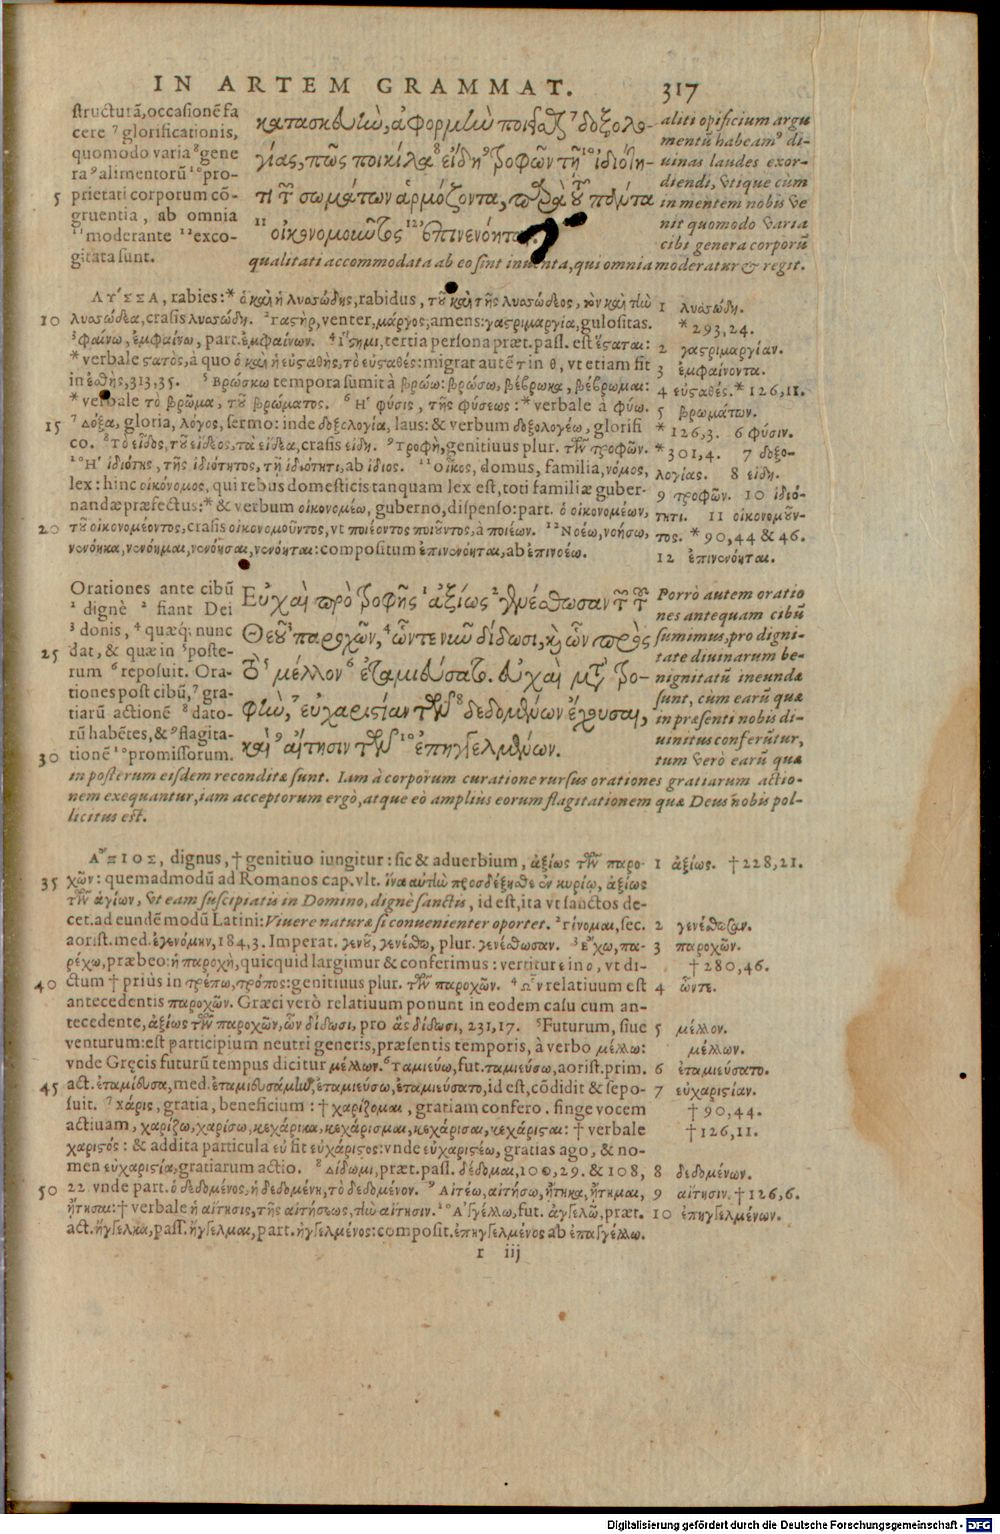 IN ARTEM GRAMMAT. 317
structurã, occasionẽ fa
cere ⁷ glorificationis,
quomodo varia ⁸gene
ra ⁹alimentorũ ¹⁰pro-
5 prietati corporum cõ-
gruentia, ab omnia
¹¹moderante ¹²exco-
gitata sunt.
κατασκευὴν, ἀφορμὴν ποιεῖσθαι ⁷ δοξολο-
γίας, πῶς ποικίλα ⁸ εἴδη ⁹ τροφῶν τῇ ¹⁰ ἰδιότη-
τι τῶν σωμάτων ἁρμόζοντα, παρὰ τοῦ πάντα
¹¹ οἰκονομοῦντος ¹² ἐπινενόηται.
aliti opificium argu
mentũ habeamᵘˢ di-
uinas laudes exor-
diendi, vtique cùm
in mentem nobis ve
nit quomodo varia
cibi genera corporũ
qualitati accommodata ab eo sint inuenta, qui omnia moderatur & regit.
ΛΥ΄ΣΣΑ, rabies:* ὁ καὶ ἡ λυσσώδης, rabidus, τοῦ καὶ τῆς λυσσώδεος, τὸν καὶ τὴν 1 λυσσώδη.
10 λυσσώδεα, crasis λυσσώδη. ²Γαστὴρ, venter, μάργος, amens: γαστριμαργία, gulositas. * 293,24.
³Φαίνω, ἐμφαίνω, part. ἐμφαίνων. ⁴Ἵστημι, tertia persona præt. pass. est ἕσταται: 2 γαστριμαργίαν.
* verbale στατὸς, à quo ὁ καὶ ἡ εὐσταθὴς, τὸ εὐσταθές: migrat autẽ τ in θ, vt etiam fit 3 ἐμφαίνοντα.
in ἐσθὴς, 313,35. ⁵Βρώσκω tempora sumit à βρώω: βρώσω, βέβρωκα, βέβρωμαι: 4 εὐσταθές. * 126,11.
* verbale τὸ βρῶμα, τοῦ βρώματος. ⁶Ἡ φύσις, τῆς φύσεως: * verbale à φύω. 5 βρωμάτων.
15 ⁷Δόξα, gloria, λόγος, sermo: inde δοξολογία, laus: & verbum δοξολογέω, glorifi * 126,3. 6 φύσιν.
co. ⁸Τὸ εἶδος, τοῦ εἴδεος, τὰ εἴδεα, crasis εἴδη. ⁹Τροφὴ, genitiuus plur. τῶν τροφῶν. * 301,4. 7 δοξο-
¹⁰Ἡ ἰδιότης, τῆς ἰδιότητος, τῇ ἰδιότητι, ab ἴδιος. ¹¹Οἶκος, domus, familia, νόμος, λογίας. 8 εἴδη.
lex: hinc οἰκόνομος, qui rebus domesticis tanquam lex est, toti familiæ guber- 9 τροφῶν. 10 ἰδιό-
nandæ præfectus:* & verbum οἰκονομέω, guberno, dispenso: part. ὁ οἰκονομέων, τητι. 11 οἰκονομοῦν-
20 τοῦ οἰκονομέοντος, crasis οἰκονομοῦντος, vt ποιέοντος ποιοῦντος, à ποιέων. ¹²Νοέω, νοήσω, τος. * 90,44 & 46.
νενόηκα, νενόημαι, νενόησαι, νενόηται: compositum ἐπινενόηται, ab ἐπινοέω. 12 ἐπινενόηται.
Orationes ante cibũ
¹ dignè ² fiant Dei
³ donis, ⁴ quæq; nunc
25 dat, & quæ in ⁵poste-
rum ⁶ reposuit. Ora-
tiones post cibũ, ⁷ gra-
tiarũ actionẽ ⁸ dato-
rũ habẽtes, & ⁹flagita-
30 tionẽ ¹⁰promissorum.
Εὐχαὶ πρὸ τροφῆς ¹ ἀξίως ² γενέσθωσαν τῶν τοῦ
Θεοῦ ³ παροχῶν, ⁴ ὧν τε νῦν δίδωσι, καὶ ὧν πρὸς
τὸ ⁵ μέλλον ⁶ ἐταμιεύσατο. εὐχαὶ μετὰ τρο-
φὴν, ⁷ εὐχαριστίαν τῶν ⁸ δεδομένων ἔχουσαι,
καὶ ⁹ αἴτησιν τῶν ¹⁰ ἐπηγγελμένων.
Porrò autem oratio
nes antequam cibũ
sumimus, pro digni-
tate diuinarum be-
nignitatũ ineundæ
sunt, cùm earũ quæ
in præsenti nobis di-
uinitus conferũtur,
tum verò earũ quæ
in posterum eisdem reconditæ sunt. Iam à corporum curatione rursus orationes gratiarum actio-
nem exequantur, iam acceptorum ergò, atque eò amplius eorum flagitationem quæ Deus nobis pol-
licitus est.
ἌΞΙΟΣ, dignus, † genitiuo iungitur: sic & aduerbium, ἀξίως τῶν παρο- 1 ἀξίως. † 228,21.
35 χῶν: quemadmodũ ad Romanos cap. vlt. ἵνα αὐτὴν προσδέξησθε ἐν κυρίῳ, ἀξίως
τῶν ἁγίων, vt eam suscipiatis in Domino, dignè sanctis, id est, ita vt sanctos de-
cet. ad eundẽ modũ Latini: Viuere naturæ si conuenienter oportet. ²Γίνομαι, sec. 2 γενέσθωσαν.
aorist. med. ἐγενόμην, 184,3. Imperat. γενοῦ, γενέσθω, plur. γενέσθωσαν. ³Ἔχω, πα- 3 παροχῶν.
ρέχω, præbeo: ἡ παροχὴ, quicquid largimur & conferimus: vertitur ε in ο, vt di- † 280,46.
40 ctum † prius in τρέπω, τρόπος: genitiuus plur. τῶν παροχῶν. ⁴Ὧν relatiuum est 4 ὧν τε.
antecedentis παροχῶν. Græci verò relatiuum ponunt in eodem casu cum an-
tecedente, ἀξίως τῶν παροχῶν, ὧν δίδωσι, pro ἃς δίδωσι, 231,17. ⁵Futurum, siue 5 μέλλον.
venturum: est participium neutri generis, præsentis temporis, à verbo μέλλω: μέλλων.
vnde Gręcis futurũ tempus dicitur μέλλων. ⁶Ταμιεύω, fut. ταμιεύσω, aorist. prim. 6 ἐταμιεύσατο.
45 act. ἐταμίευσα, med. ἐταμιευσάμην, ἐταμιεύσω, ἐταμιεύσατο, id est, cõdidit & sepo- 7 εὐχαριστίαν.
suit. ⁷Χάρις, gratia, beneficium: † χαρίζομαι, gratiam confero. finge vocem † 90,44.
actiuam, χαρίζω, χαρίσω, κεχάρικα, κεχάρισμαι, κεχάρισαι, κεχάρισται: † verbale † 126,11.
χαριστός: & addita particula εὖ fit εὐχάριστος: vnde εὐχαριστέω, gratias ago, & no-
men εὐχαριστία, gratiarum actio. ⁸Δίδωμι, præt. pass. δέδομαι, 106,29. & 108, 8 δεδομένων.
50 22 vnde part. ὁ δεδομένος, ἡ δεδομένη, τὸ δεδομένον. ⁹Αἰτέω, αἰτήσω, ᾔτηκα, ᾔτημαι, 9 αἴτησιν. † 126,6.
ᾔτησαι: † verbale ἡ αἴτησις, τῆς αἰτήσεως, τὴν αἴτησιν. ¹⁰Ἀγγέλλω, fut. ἀγγελῶ, præt. 10 ἐπηγγελμένων.
act. ἤγγελκα, pass. ἤγγελμαι, part. ἠγγελμένος: composit. ἐπηγγελμένος ab ἐπαγγέλλω.
r iij
Digitalisierung gefördert durch die Deutsche Forschungsgemeinschaft - DFG